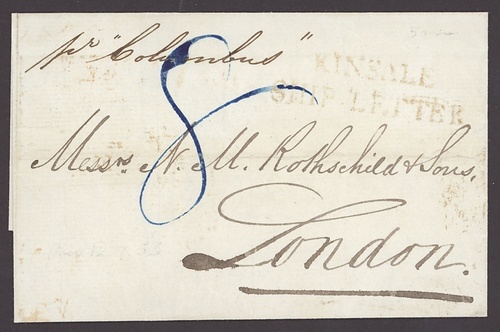 pr "Columbus"
KINSALE
SHIP LETTER
8
Messrs. N. M. Rothschild & Sons,
London.